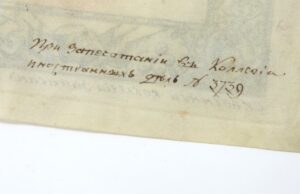 При Запечатаніи въ Коллегіи
иностранныхъ дѣлъ № 3739